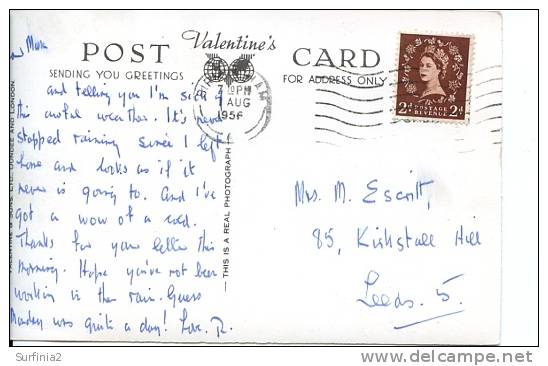 Valentine's
POST CARD
SENDING YOU GREETINGS
FOR ADDRESS ONLY
and Mum
and telling you I'm sick of
this awful weather. It's never
stopped raining since I left
home and looks as if it
never is going to. And I've
got a wow of a cold.
Thanks for your letter this
morning. Hope you've not been
working in the rain. Guess
Monday was quite a day! Love. R.
7 PM
AUG
1956
POSTAGE
REVENUE
2d 2d
— THIS IS A REAL PHOTOGRAPH
VALENTINE & SONS LTD. DUNDEE AND LONDON
Mrs. M. Escritt,
85, Kirkstall Hill
Leeds. 5.
Surfinia2
delcampe.net